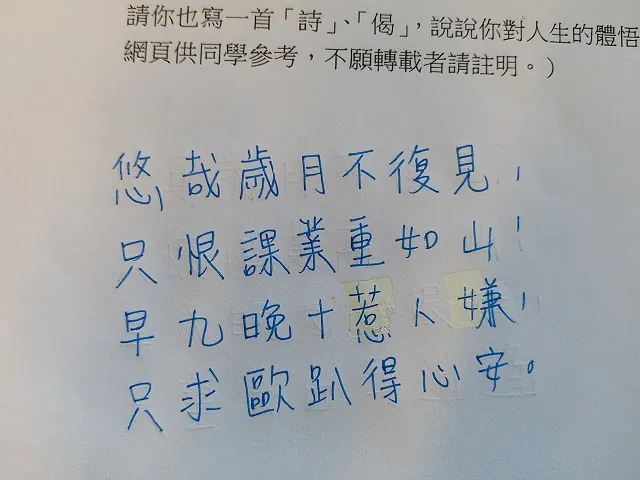 請你也寫一首「詩」、「偈」，說說你對人生的體悟
網頁供同學參考，不願轉載者請註明。）
悠哉歲月不復見，
只恨課業重如山，
早九晚十惹人嫌，
只求歐趴得心安。